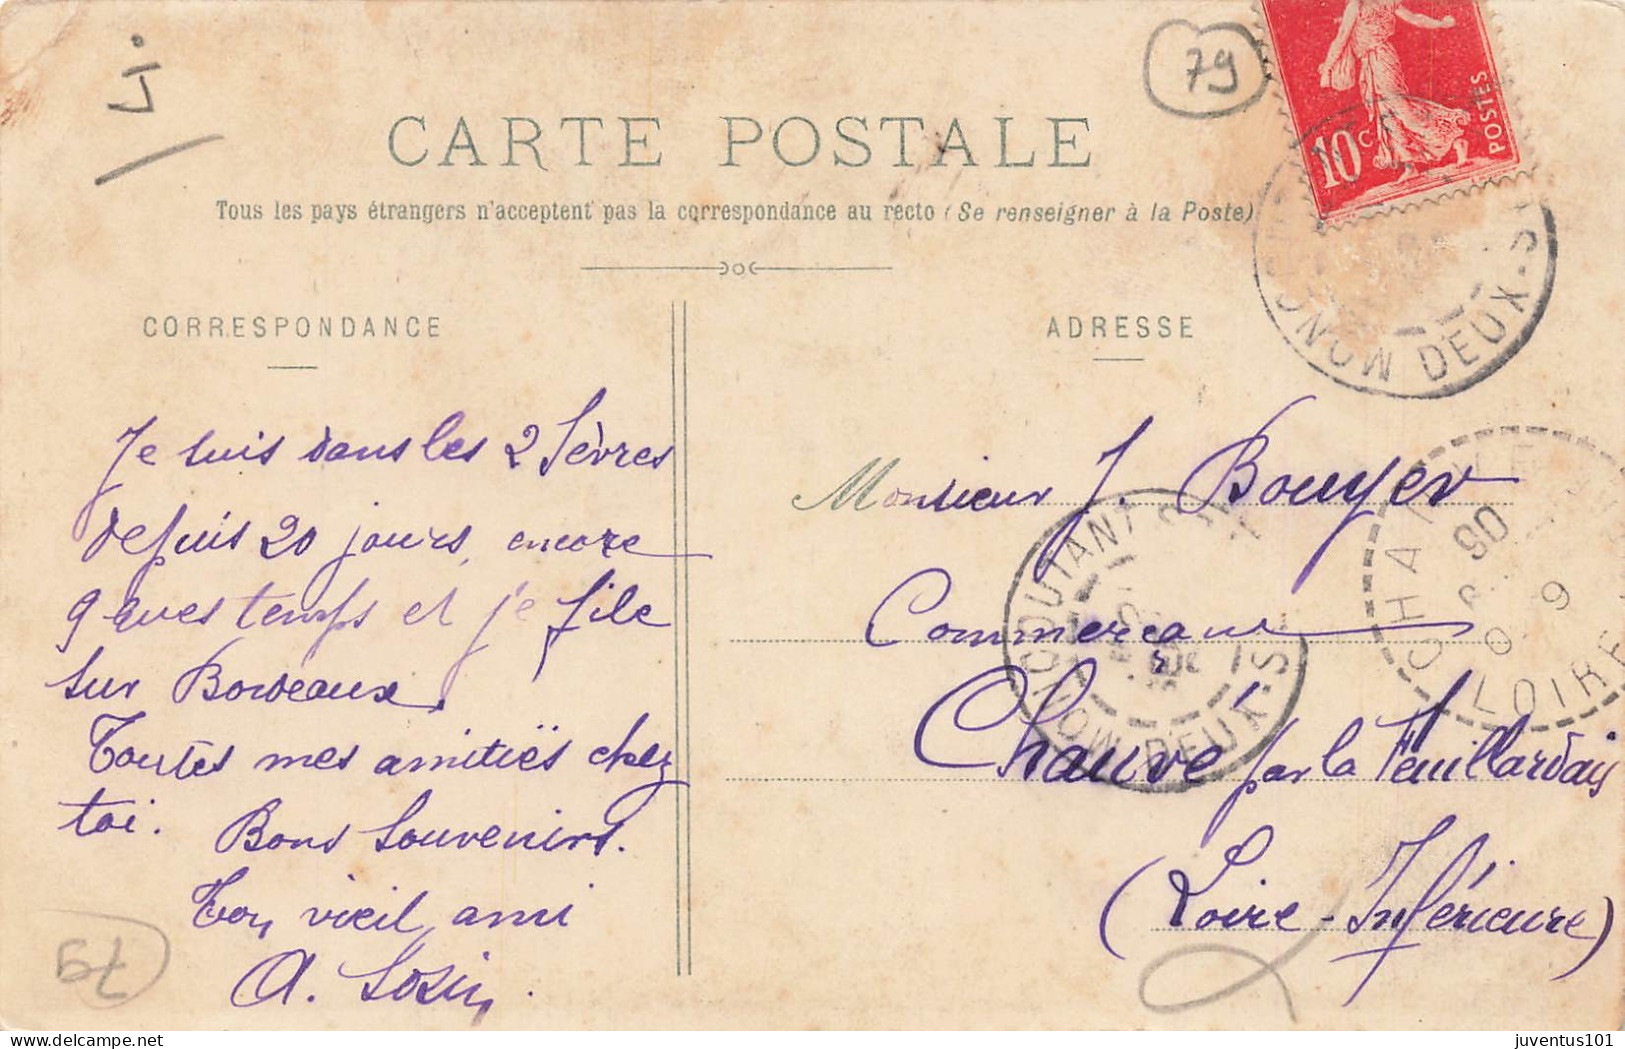 Li.
79
10c
POSTES
CARTE POSTALE
Tous les pays étrangers n'acceptent pas la correspondance au recto (Se renseigner à la Poste)
CORRESPONDANCE
Je suis dans les 2 Sèvres
depuis 20 jours, encore
q ques temps et je file
sur Bordeaux.
Toutes mes amitiés chez
toi. Bons souvenirs.
Ton vieil ami
A.
79
ADRESSE
MONCOUTANT DEUX-SÈVRES
Monsieur J. Bouyer
Commerçant
Chauvé par la Feuillardais
(Loire-Inférieure)
MONCOUTANT DEUX-S
LOIRE
juventus101